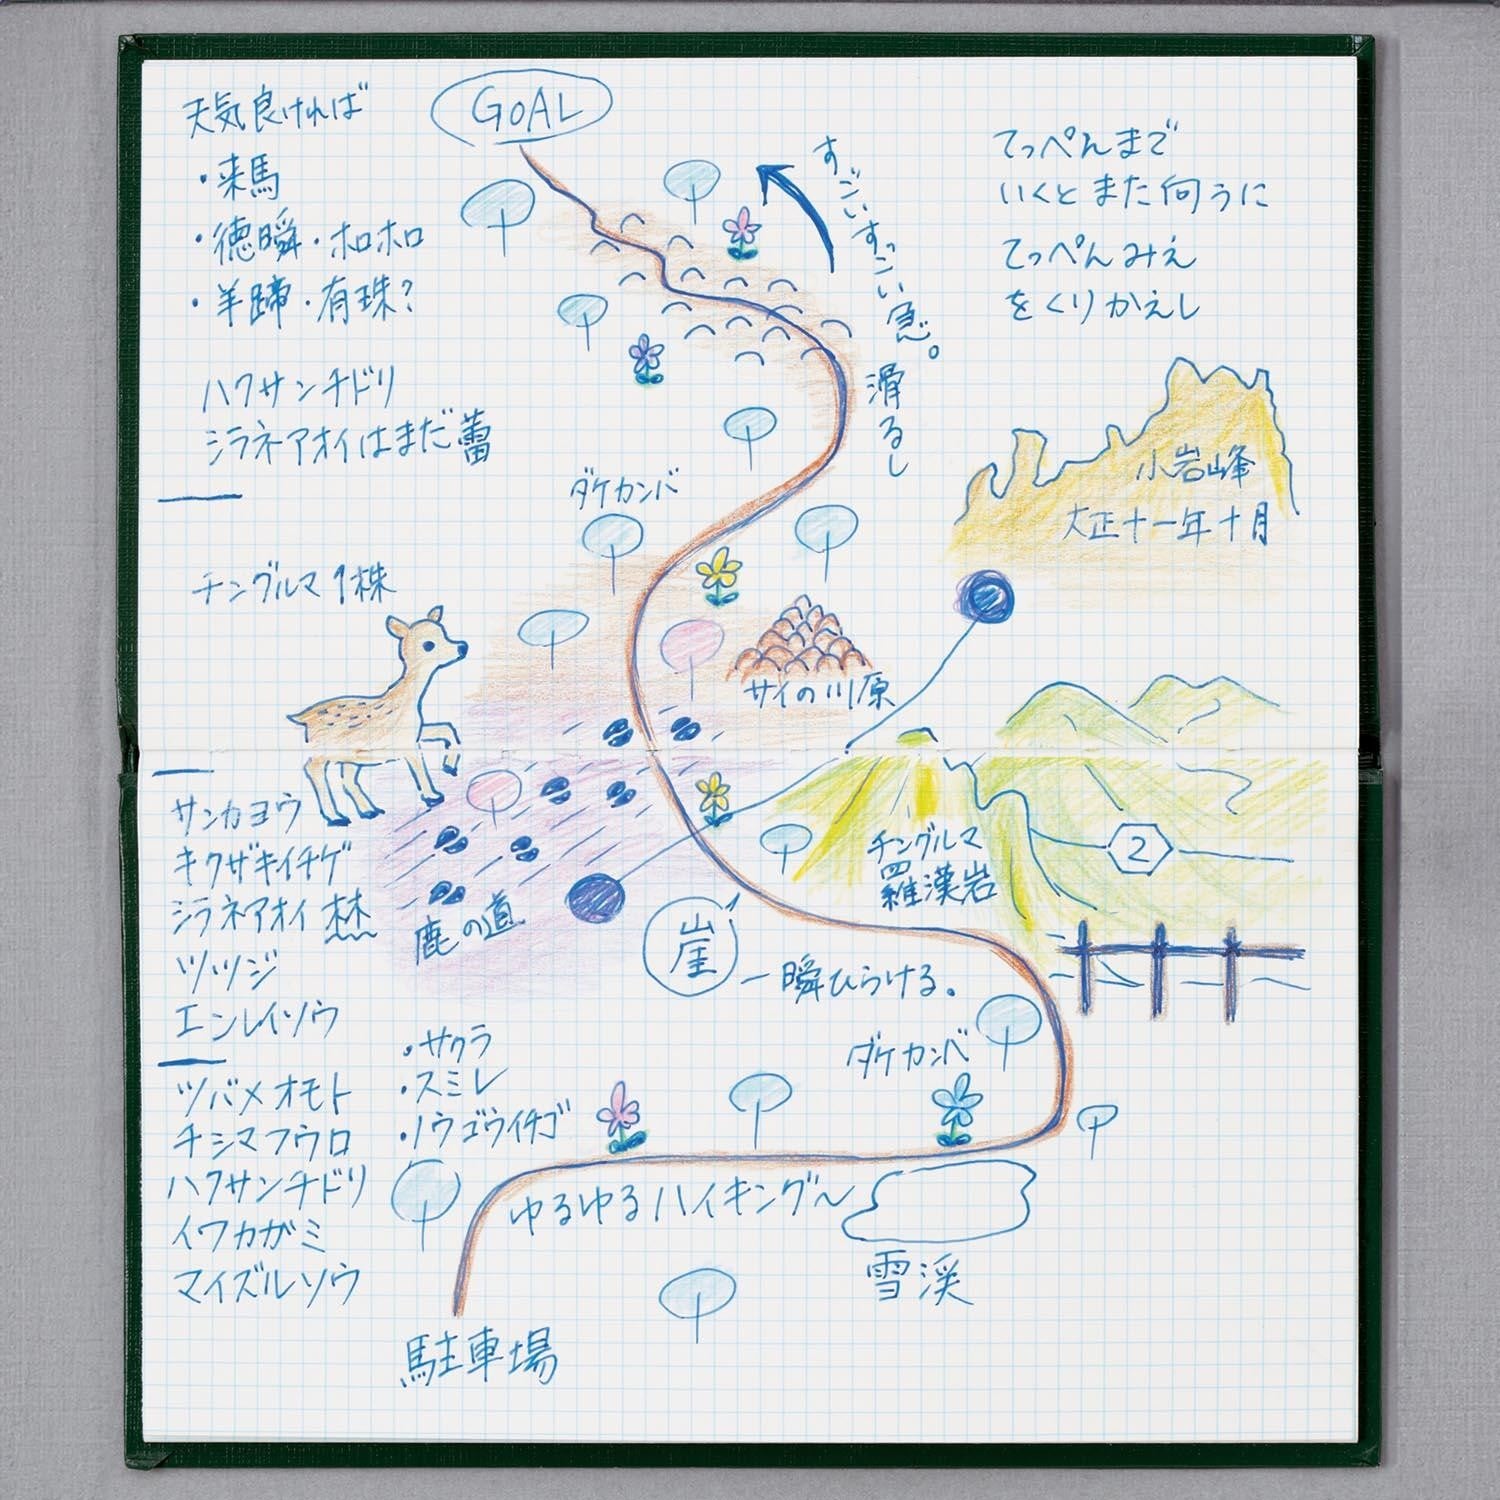 天気良ければ
・来馬
・徳瞬・ホロホロ
・羊蹄・有珠?
ハクサンチドリ
シラネアオイはまだ蕾
チングルマ1株
GOAL
すごいすごい急。
滑るし
てっぺんまで
いくとまた向うに
てっぺんみえ
をくりかえし
小岩峰
大正十一年十月
ダケカンバ
サイの川原
サンカヨウ
キクザキイチゲ
シラネアオイ
ツツジ
エンレイソウ
鹿の道
崖
一瞬ひらける。
チングルマ
羅漢岩
2
ダケカンバ
ツバメオモト
チシマフウロ
ハクサンチドリ
イワカガミ
マイズルソウ
・サクラ
・スミレ
・ノウゴウイチゴ
ゆるゆるハイキング〜
雪渓
駐車場